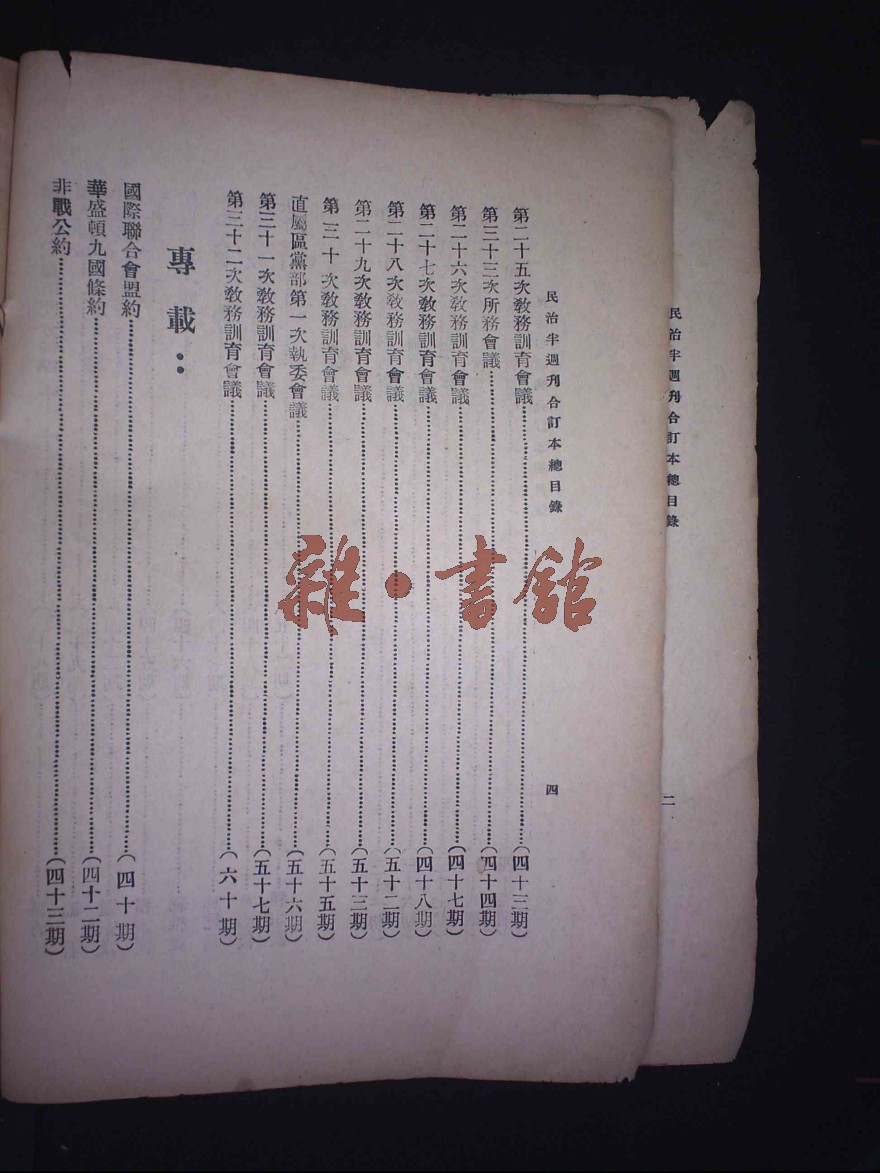 民治半週刋合訂本總目錄
二
民治半週刋合訂本總目錄
四
第二十五次敎務訓育會議……(四十三期)
第三十三次所務會議……(四十四期)
第二十六次敎務訓育會議……(四十七期)
第二十七次敎務訓育會議……(四十八期)
第二十八次敎務訓育會議……(五十二期)
第二十九次敎務訓育會議……(五十三期)
第三十次敎務訓育會議……(五十五期)
直屬區黨部第一次執委會議……(五十六期)
第三十一次敎務訓育會議……(五十七期)
第三十二次敎務訓育會議……(六十期)
專載：
國際聯合會盟約……(四十期)
華盛頓九國條約……(四十二期)
非戰公約……(四十三期)
雜·書館